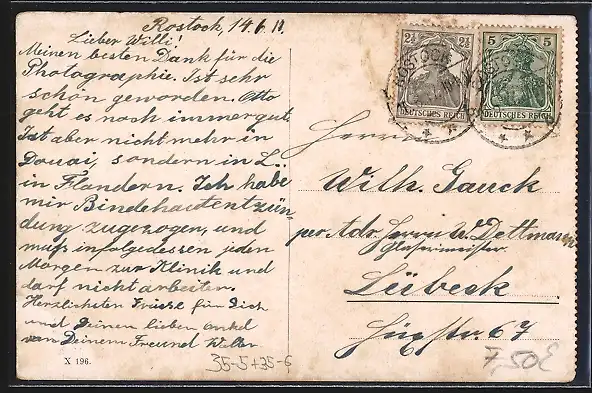 Rostock, 14.6.
Lieber Willi!
Meinen besten Dank für die
Photographie. Ist sehr
schön geworden. Otto
geht es noch immer gut.
Ist aber nicht mehr in
Douai, sondern in L..
in Flandern. Ich habe
mir Bindehautentzün
dung zugezogen, und
muß infolgedessen jeden
Morgen zur Klinik und
darf nicht arbeiten.
Herzlichsten Grüsse für Dich
und Deinen lieben Onkel
von Deinem Freund
X 196.
35-5+35-6
2½ 2½
DEUTSCHES REICH
5 5
DEUTSCHES REICH
ROSTOCK
Herrn
Wilh. Gauck
per Adr. Herrn W. Dettmann
Glasermeister
Lübeck
Hüxstr. 67